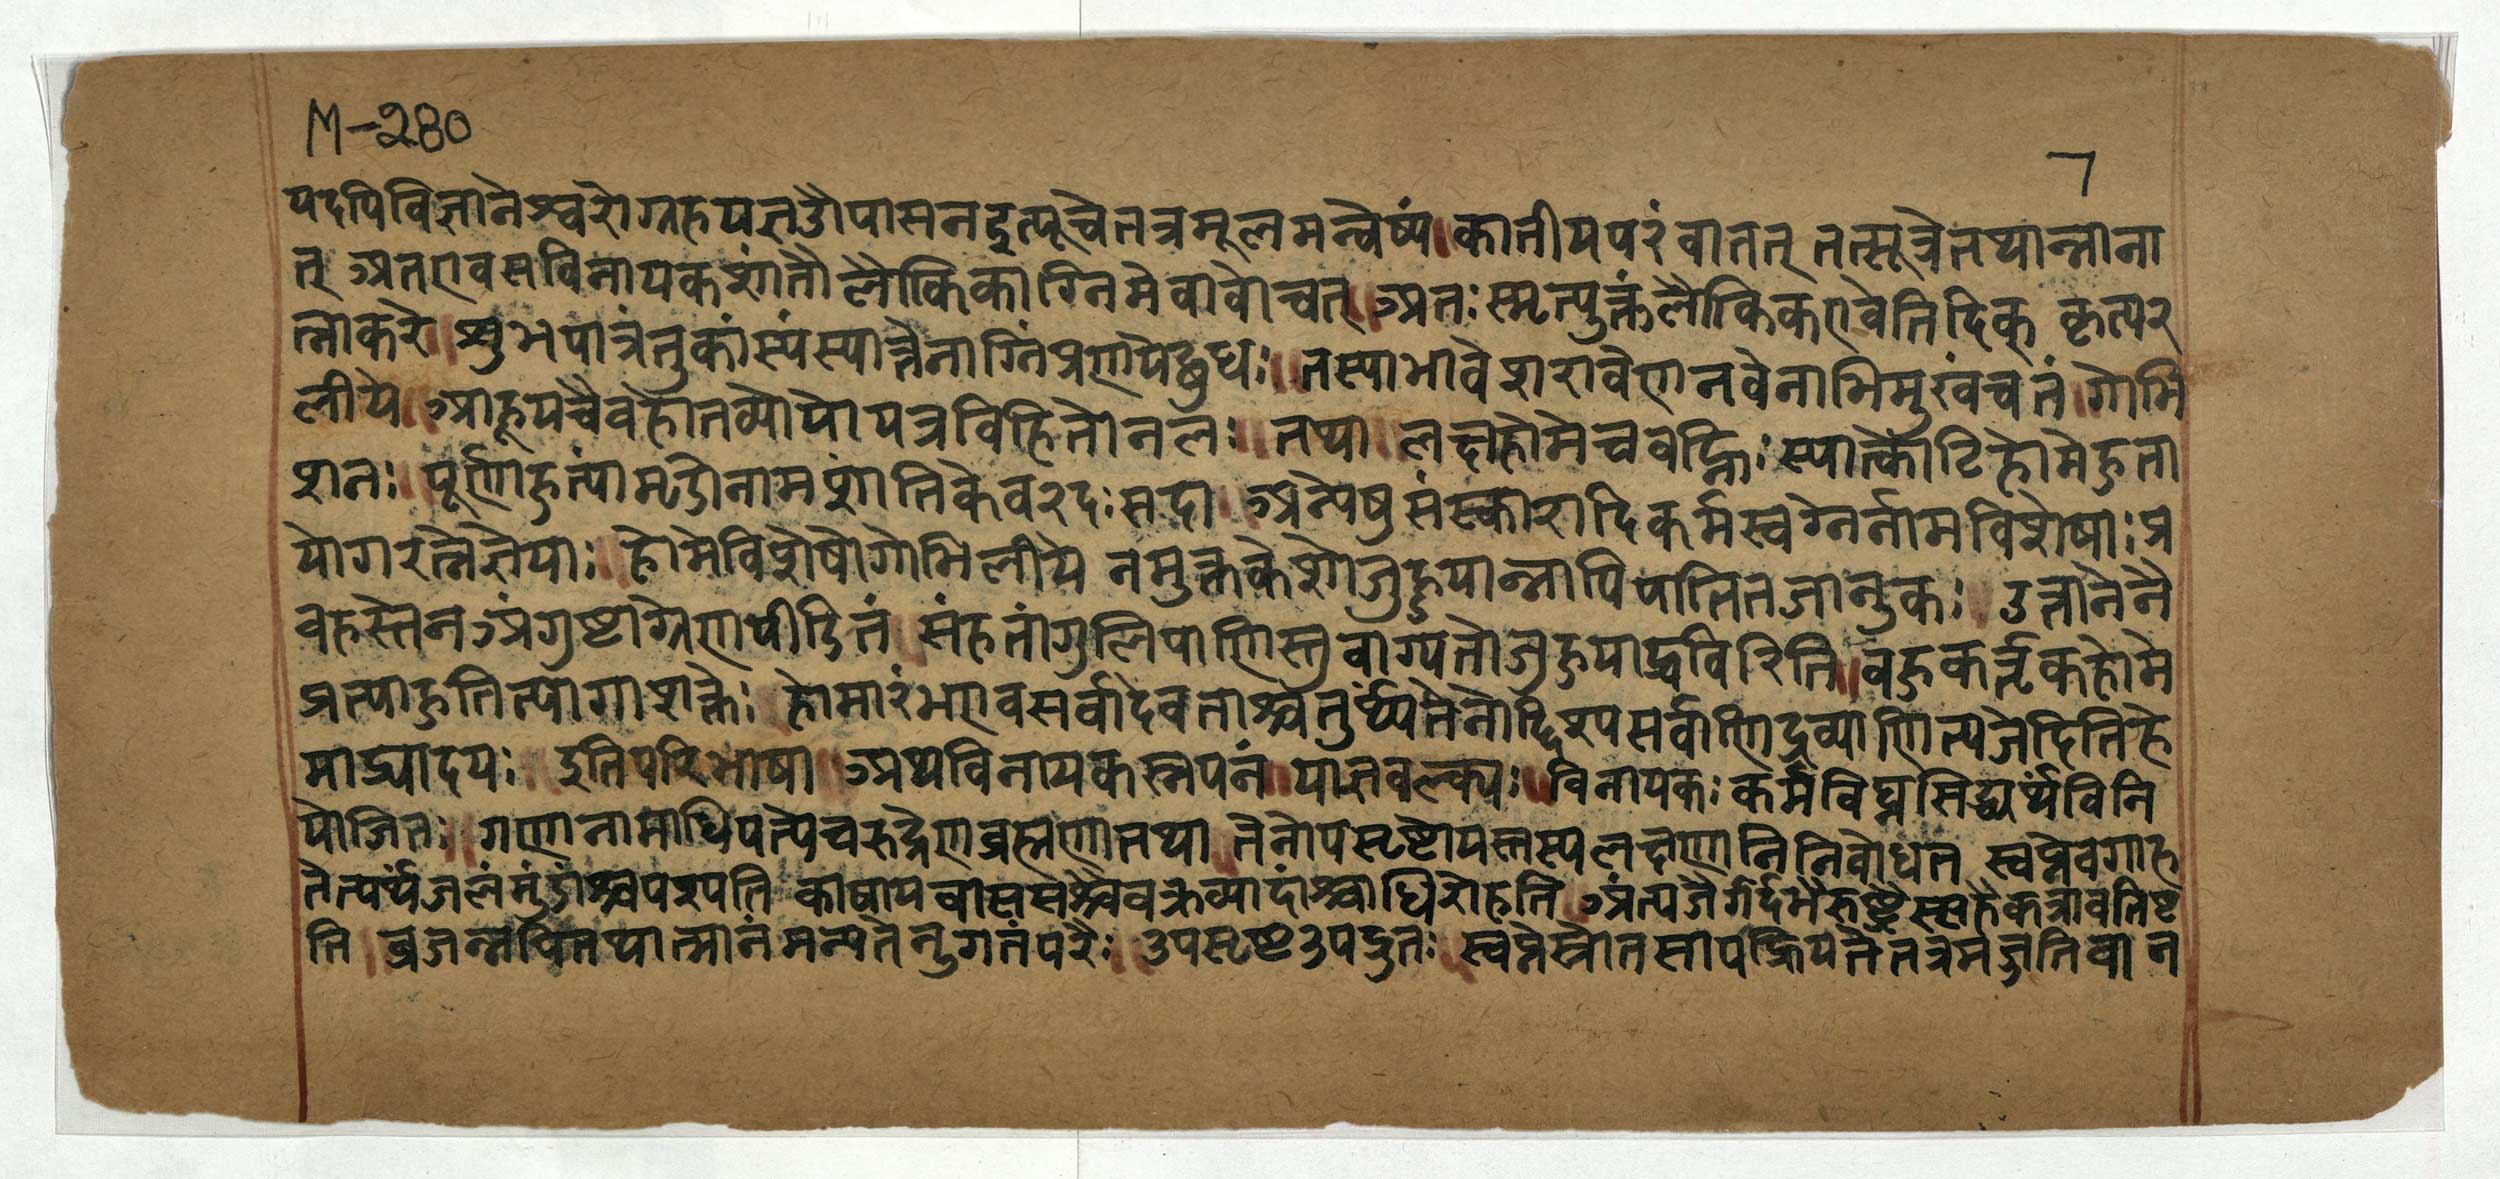 M-280
7
यदपि विज्ञानेश्वरो ग्रहयज्ञ औपासन इत्यूचे तत्र मूलमन्वेष्यं ॥ कातीयपरं वा तत् तत्सूत्रे तथाम्नाना
त् अतएव सविनायकशांतौ लौकिकाग्निमेवावोचत् ॥ अतः स्मृत्युक्तं लौकिक एवेति दिक् कृत्यर
त्नाकरे ॥ शुभपात्रं तु कांस्यं स्यात्तेनाग्निं प्रणयेद्बुधः ॥ तस्याभावे शरावेण नवेनाभिमुखं च तं ॥ गोभि
लीये ॥ आहूयचैव होतव्यो यो यत्र विहितोनलः ॥ तथा ॥ लक्षहोमे च वह्निः स्यात्कोटिहोमे हुता
शनः ॥ पूर्णाहुत्यां मृडो नाम शांतिके वरदः सदा ॥ अन्येषु संस्कारादिकर्मस्वग्नेर्नामविशेषाः प्र
योगरत्ने ज्ञेयाः ॥ होमे विशेषो गोभिलीये न मुक्तकेशो जुहुयान्नापि पातितजानुकः ॥ उत्तानेनै
व हस्तेन अंगुष्टाग्रेण पीडितं ॥ संहतांगुलिपाणिस्तु वाग्यतो जुहुयाद्धविरिति ॥ बहुकर्तृकहोमे
प्रत्याहुतित्यागाशक्तेः होमारंभ एव सर्वा देवताश्चतुर्थ्यंतेनोद्दिश्य सर्वाणि द्रव्याणि त्यजेदिति हे
माद्र्यादयः ॥ इति परिभाषा ॥ अथ विनायकस्नपनं ॥ याज्ञवल्क्यः ॥ विनायकः कर्मविघ्नसिद्ध्यर्थं विनि
योजितः ॥ गणानामाधिपत्ये च रुद्रेण ब्रह्मणा तथा ॥ तेनोपसृष्टो यस्तस्य लक्षणानि निबोधत स्वप्नेवगाह
तेत्यर्थं जलं मुंडांश्च पश्यति काषायवाससश्चैव क्रव्यादांश्चाधिरोहति ॥ अंत्यजैर्गर्दभैरुष्ट्रैः सहैकत्रावतिष्ट
ति ॥ व्रजन्नपि तथात्मानं मन्यतेनुगतं परैः ॥ उपसृष्ट उपद्रुतः ॥ स्वप्ने स्रोतसापह्रियते तत्र मज्जति वा न